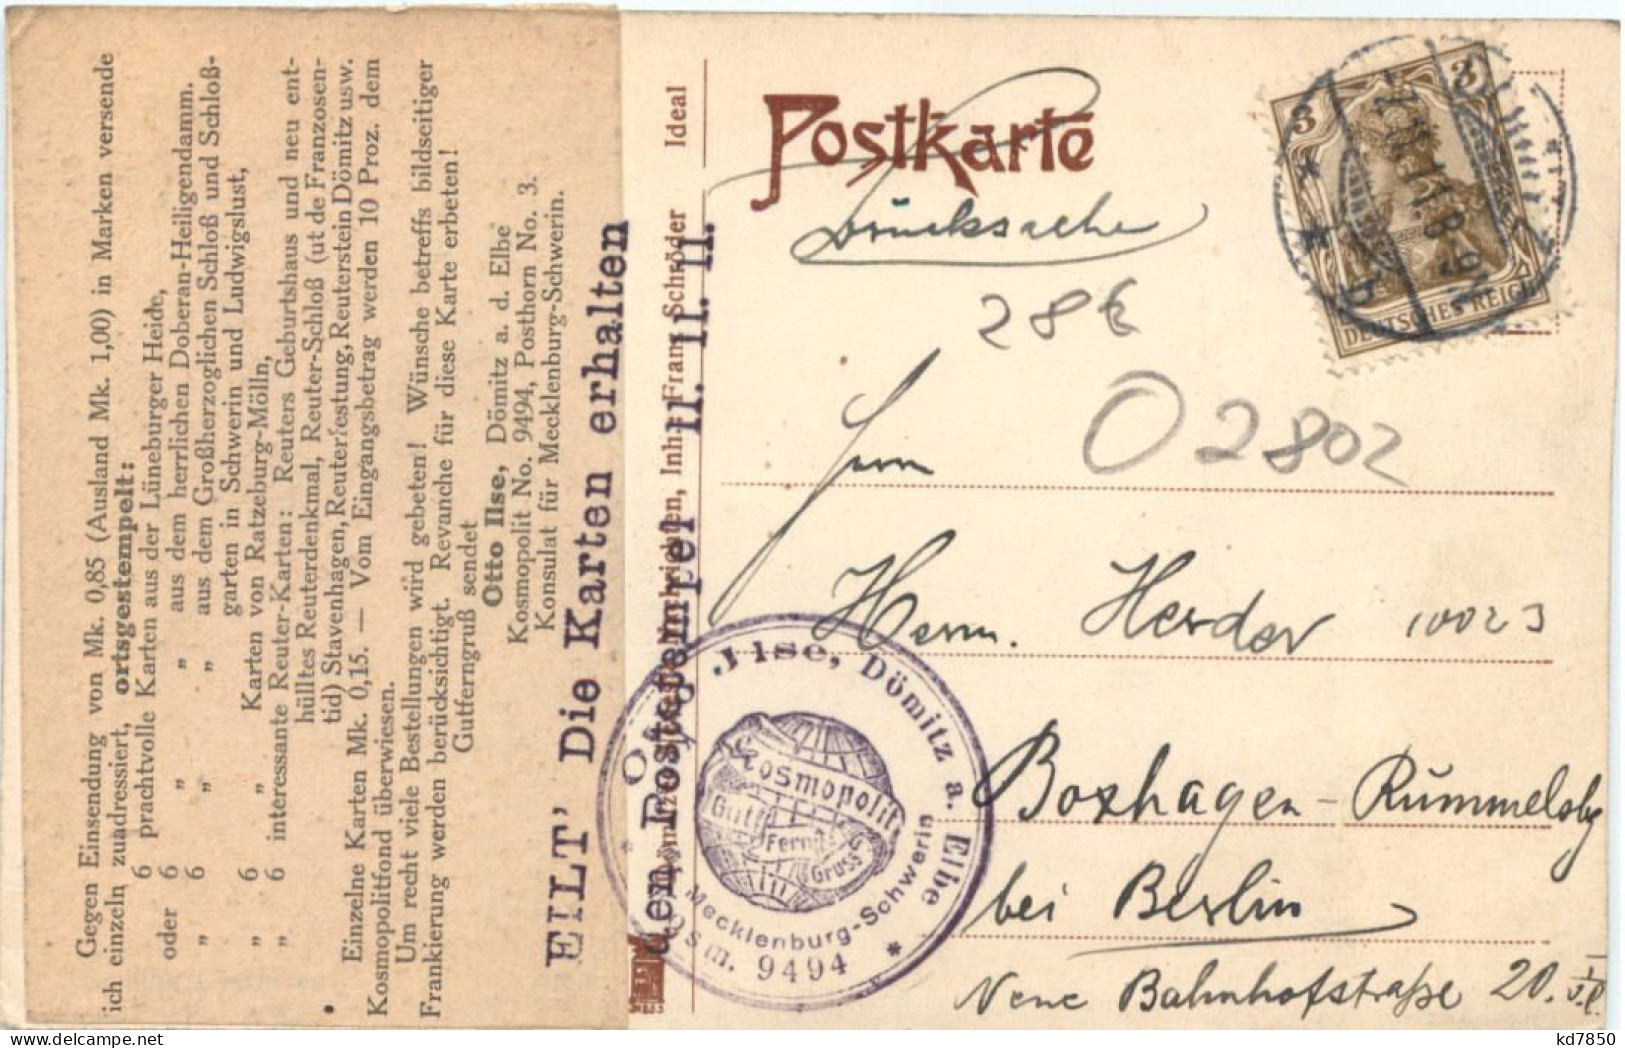 Gegen Einsendung von Mk. 0,85 (Ausland Mk. 1,00) in Marken versende
ich einzeln zuadressiert, ortsgestempelt:
6 prachtvolle Karten aus der Lüneburger Heide,
oder 6 „ „ aus dem herrlichen Doberan-Heiligendamm.
„ 6 „ „ aus dem Großherzoglichen Schloß und Schloß-
garten in Schwerin und Ludwigslust,
„ 6 „ Karten von Ratzeburg-Mölln,
„ 6 interessante Reuter-Karten: Reuters Geburtshaus und neu ent-
hülltes Reuterdenkmal, Reuter-Schloß (ut de Franzosen-
tid) Stavenhagen, Reuterfestung, Reuterstein Dömitz usw.
Einzelne Karten Mk. 0,15. — Vom Eingangsbetrag werden 10 Proz. dem
Kosmopolitfond überwiesen.
Um recht viele Bestellungen wird gebeten! Wünsche betreffs bildseitiger
Frankierung werden berücksichtigt. Revanche für diese Karte erbeten!
Gutferngruß sendet
Otto Ilse, Dömitz a. d. Elbe
Kosmopolit No. 9494, Posthorn No. 3.
Konsulat für Mecklenburg-Schwerin.
EILT' Die Karten erhalten
den Poststempel 11. 11. 11.
Inh.: Franz Schröder
Ideal
Postkarte
Drucksache
3 3
DEUTSCHES REICH
28€
O 2802
Herrn. Herder
10023
Boxhagen-Rummelsbg
bei Berlin
Neue Bahnhofstraße 20. I
Otto Ilse, Dömitz a. Elbe
Kosmopolit
Gut
Fern
Gruss
Mecklenburg-Schwerin
Kosm. 9494
kd7850